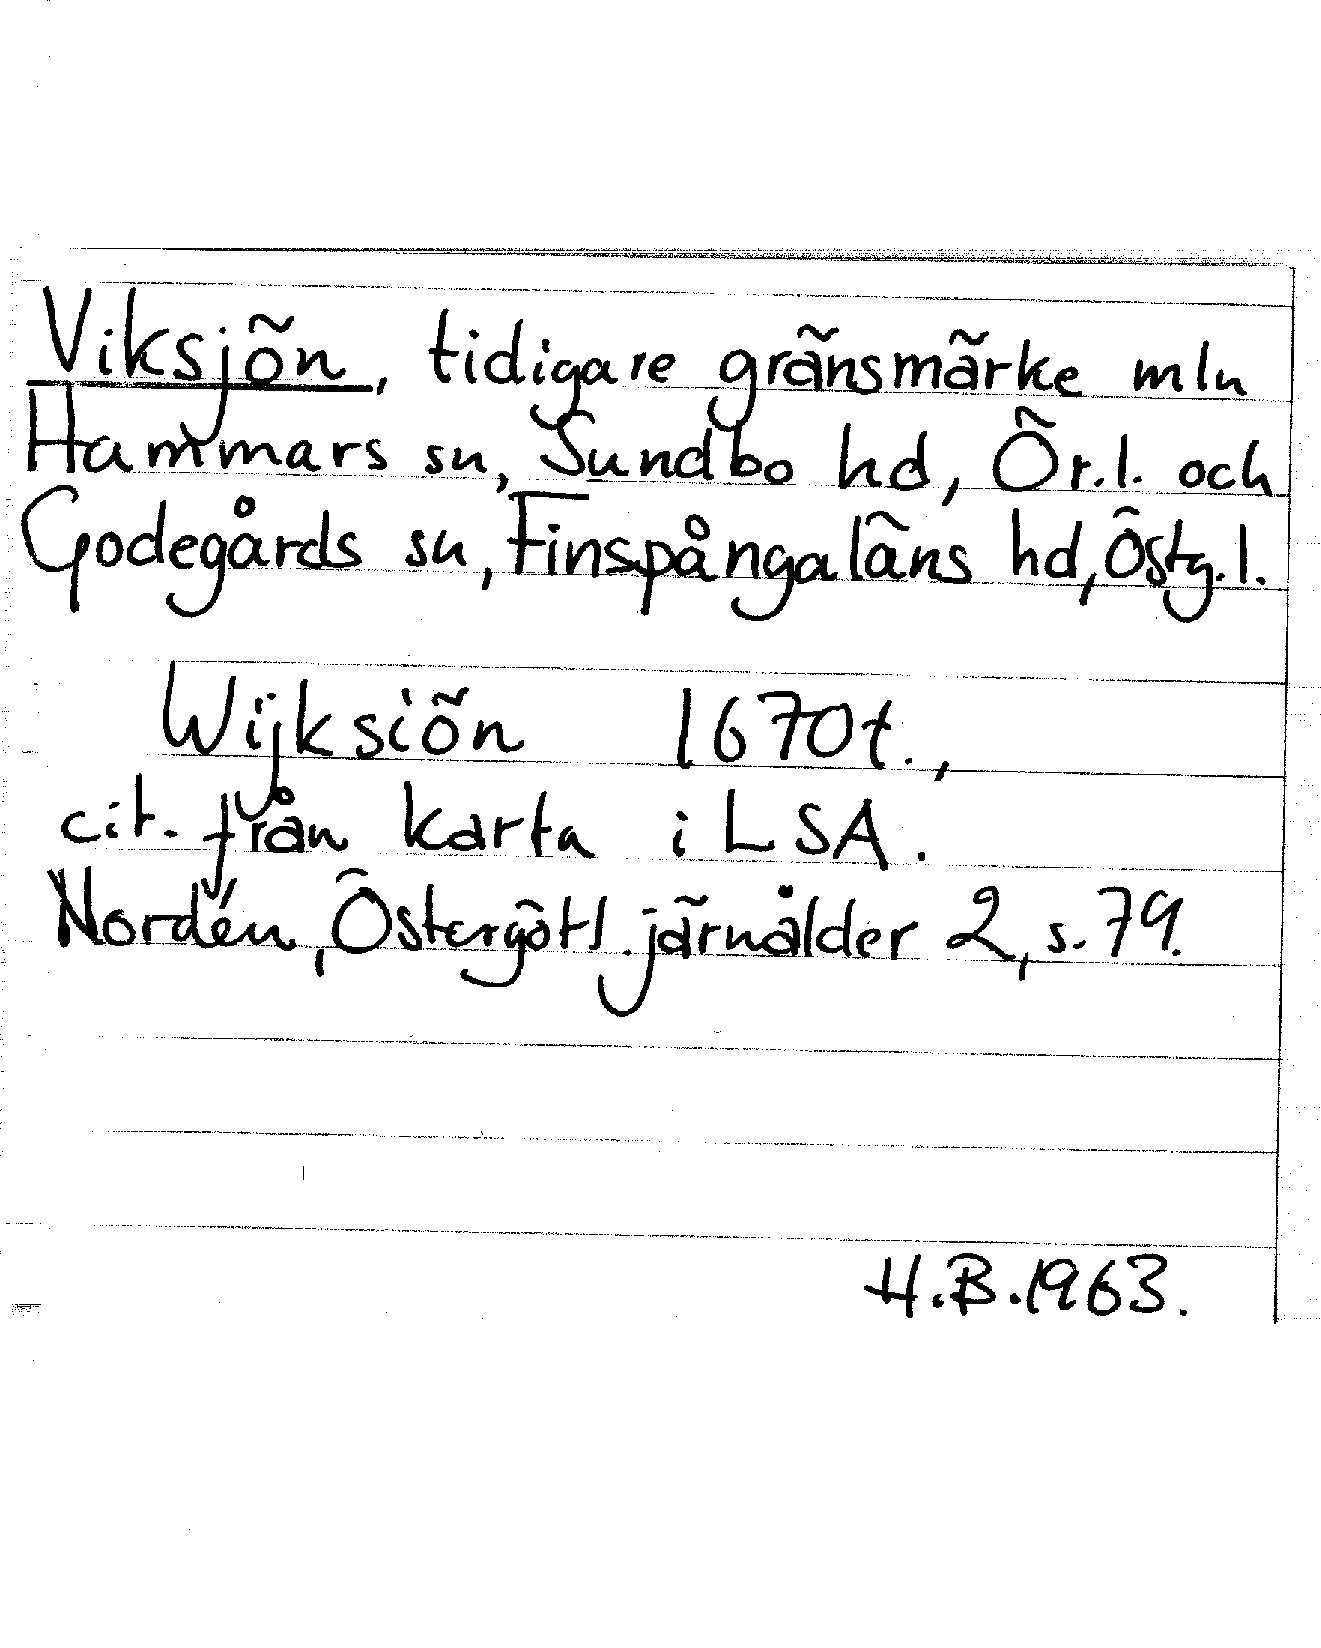 Viksjön, tidigare gränsmärke mln
Hammars sn, Sundbo hd, Ör.l. och
Godegårds sn, Finspångaläns hd, Östg.l.
Wijksiön 1670t.,
cit. från karta i LSA.
Nordén, Östergötl. järnålder 2, s. 79.
H.B. 1963.